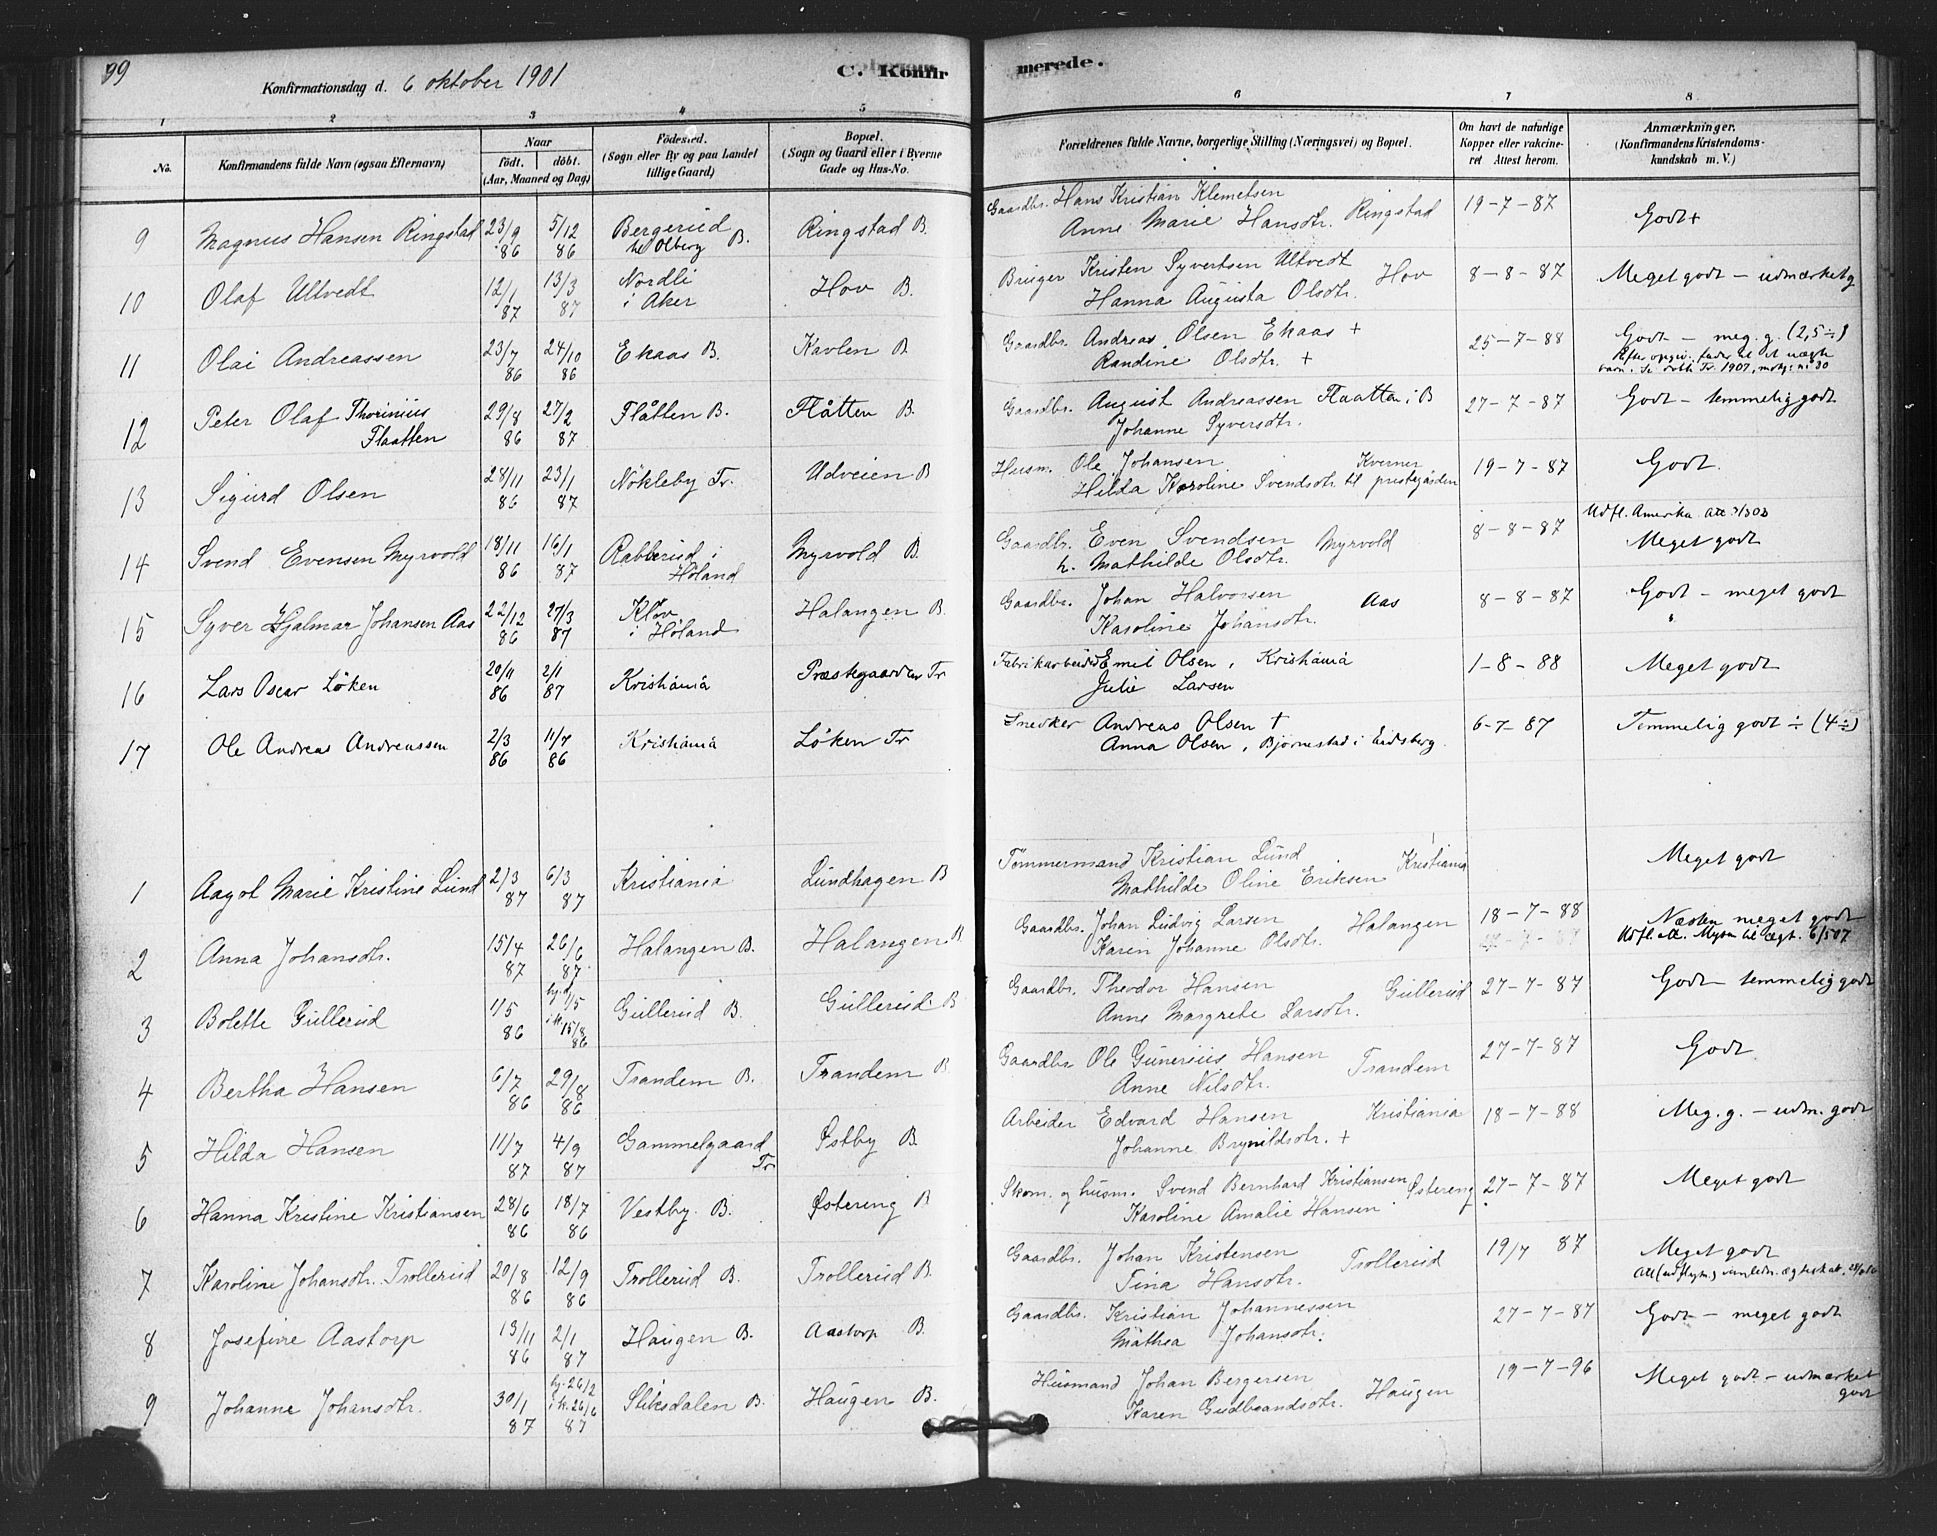 99
Konfirmationsdag d. 6 oktober 1901
C. Konfirmerede.
1 2 3 4 5 6 7 8
No.
Konfirmandens fulde Navn (ogsaa Efternavn)
Naar
födt. döbt.
(Aar, Maaned og Dag)
Födested.
(Sogn eller By og paa Landet
tillige Gaard)
Bopæl.
(Sogn og Gaard eller i Byerne
Gade og Hus-No.
Forældrenes fulde Navne, borgerlige Stilling (Næringsvei) og Bopæl.
Om havt de naturlige
Kopper eller vakcine-
ret Attest herom.
Anmærkninger.
(Konfirmandens Kristendoms-
kundskab m. V.)
9 Magnus Hansen Ringstad 23/9 86 5/12 86 Bergerud u/ Olberg B. Ringstad B. Gaardbr. Hans Kristian Klemetsen
Anne Marie Hansdtr. Ringstad 19-7-87 Godt+
10 Olaf Ultvedt 12/1 87 13/3 87 Nordli i Aker Hov B. Bruger Kristen Syvertsen Ultvedt
Hanna Augusta Olsdtr. Hov 8-8-87 Meget godt – udmærket g
11 Olai Andreassen 23/7 86 24/10 86 Ekaas B. Kavlen B Gaardbr. Andreas Olsen Ekaas +
Randine Olsdtr. + 25-7-88 Godt – meg. g. (2,5÷)
12 Peter Olaf Thorinius Flaatten 29/8 86 27/2 87 Flåtten B. Flåtten B. Gaardbr. August Andreassen Flaatten i B
Johanne Syversdtr. 27-7-87 Godt – temmelig godt
13 Sigurd Olsen 28/11 86 23/1 87 Nökleby Tr. Udveien B Husm. Ole Johansen Kverner
Hilda Karoline Svendsdtr til prestegården 19-7-87 Godt.
Udfl. Amerika. Att 3/3 03
14 Svend Evensen Myrvold 18/11 86 16/1 87 Rabberud i Høland Myrvold B. Gaardbr. Even Svendsen Myrvold
h. Mathilde Olsdtr. 8-8-87 Meget godt
15 Syver Hjalmar Johansen Aas 22/12 86 27/3 87 Kløv i Høland Halangen B. Gaardbr. Johan Halvorsen Aas
Karoline Johansdtr. 8-8-87 Godt – meget godt
16 Lars Oscar Løken 20/11 86 2/1 87 Kristiania Præstegaarden Tr Fabrikarbeider Emil Olsen, Kristiania
Julie Larsen 1-8-88 Meget godt
17 Ole Andreas Andreassen 2/3 86 11/7 86 Kristiania Løken Tr Snedker Andreas Olsen †
Anna Olsen, Bjørnestad i Eidsberg. 6-7-87 Temmelig godt ÷ (4÷)
1 Aagot Marie Kristine Lund 2/3 87 6/3 87 Kristiania Lundhagen B Tömmermand Kristian Lund Kristiania
Mathilde Oline Eriksen Meget godt
2 Anna Johansdtr. 15/4 87 26/6 87 Halangen B. Halangen B Gaardbr. Johan Ludvig Larsen Halangen
Karen Johanne Olsdtr. 18-7-88 Næsten meget godt
Udfl. att. Mysen til ægt. 6/5 07
3 Bolette Gullerud 1/5 86 hj.d. 1/5 i k. 15/8 86 Gullerud B. Gullerud B Gaardbr. Theodor Hansen Gullerud
Anne Margrete Larsdtr. 27-7-87 Godt – temmelig godt
4 Bertha Hansen 6/7 86 29/8 86 Trandem B. Trandem B Gaardbr. Ole Gunerius Hansen Trandem
Anne Nilsdtr. 27-7-87 Godt
5 Hilda Hansen 11/7 87 4/9 87 Gammelgaard Tr Østby B Arbeider Edvard Hansen Kristiania
Johanne Brynildsdtr. + 18-7-88 Meg. g. – udm. godt
6 Hanna Kristine Kristiansen 28/6 86 18/7 86 Vestby B. Østereng B Skom. og husm. Svend Bernhard Kristiansen Østereng
Karoline Amalie Hansen 27-7-87 Meget godt
7 Karoline Johansdtr. Trollerud 20/8 86 12/9 86 Trollerud B. Trollerud B. Gaardbr. Johan Kristensen Trollerud
Tina Hansdtr. 19/7 87 Meget godt
8 Josefine Aastorp 13/11 86 2/1 87 Haugen B. Aastorp B. Gaardbr. Kristian Johannessen
Mathea Johansdtr. 27-7-87 Godt – meget godt
9 Johanne Johansdtr. 30/1 87 hj. 26/2 i k. 26/6 87 Sliksdalen B. Haugen B. Husmand Johan Bergersen Haugen
Karen Gudbrandsdtr. 19-7-96 Meget godt – udmærket
godt